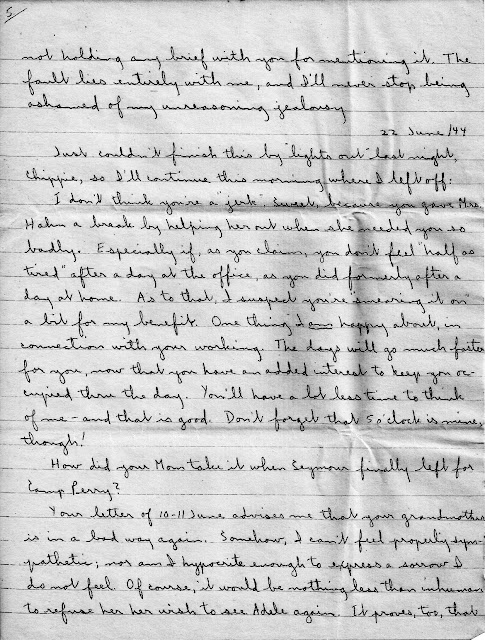 5/
not holding any brief with you for mentioning it. The
fault lies entirely with me, and I'll never stop being
ashamed of my unreasoning jealousy
22 June/44
Just couldn't finish this by "lights out" last night,
Chippie, so I'll continue this morning where I left off:
I don't think you're a "jerk" Sweet, because you gave Mrs.
Hahn a break by helping her out when she needed you so
badly. Especially if, as you claim, you don't feel "half as
tired" after a day at the office, as you did formerly after a
day at home. As to that, I suspect you're "smearing it on"
a bit for my benefit. One thing I am happy about, in
connection with your working. The days will go much faster
for you, now that you have an added interest to keep you oc-
cupied thru the day. You'll have a lot less time to think
of me - and that is good. Don't forget that 5 o'clock is mine,
though!
How did your Mom take it when Seymour finally left for
Camp Perry?
Your letter of 10-11 June advises me that your grandmother
is in a bad way again. Somehow, I can't feel properly sym-
pathetic; nor am I hypocrite enough to express a sorrow I
do not feel. Of course, it would be nothing less than inhuman
to refuse her her wish to see Adele again. It proves, too, that